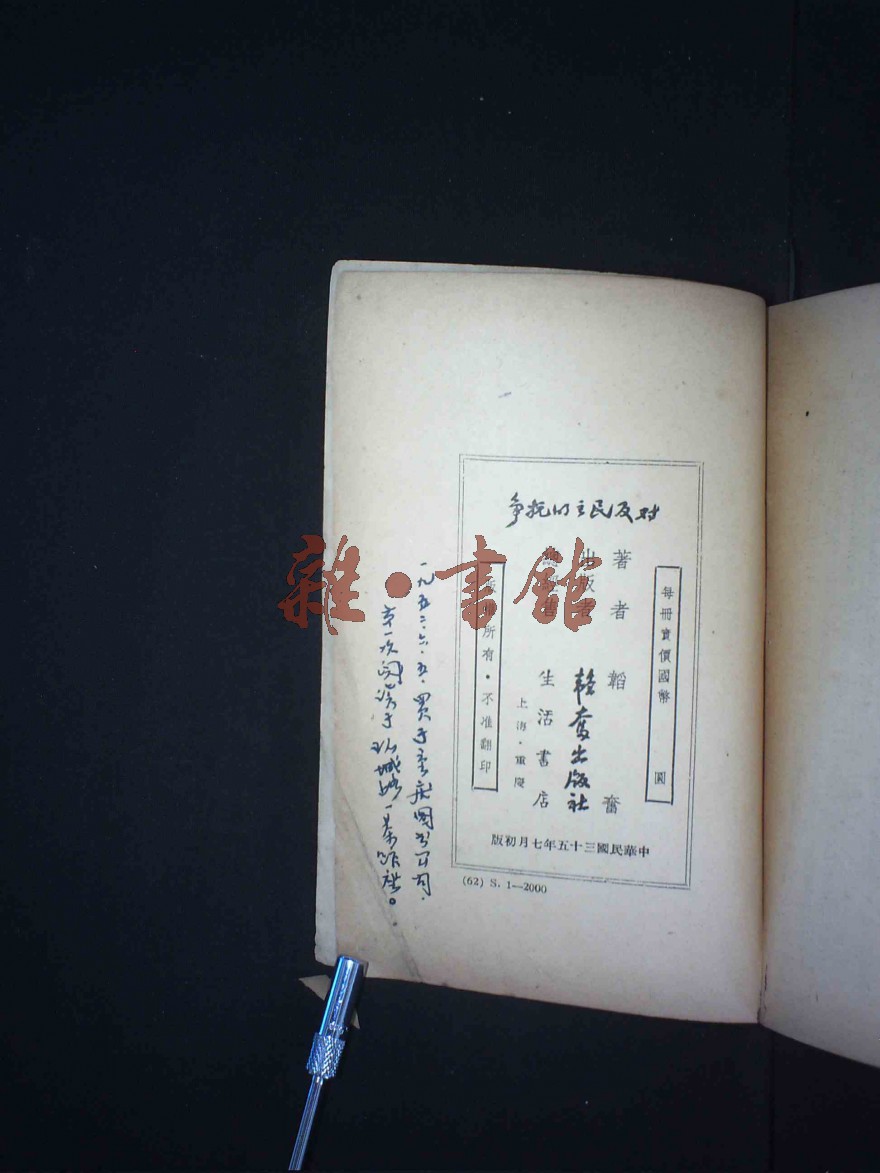 對反民主的抗爭
每冊實價國幣 圓
著者 韜奮
出版者 韜奮出版社
生活書店
上海·重慶
所有·不准翻印
中華民國三十五年七月初版
(62) S. 1—2000
一九五二·六·五·買于重庆圖書公司·
第一次閱讀于
雜·書館